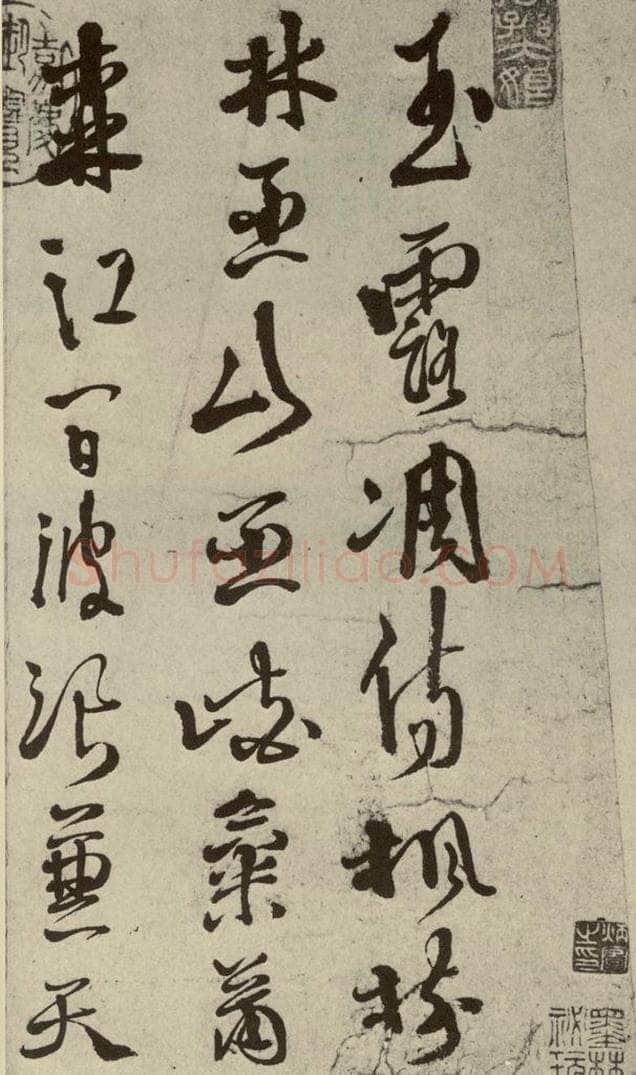 玉露凋傷楓樹
林巫山巫峽氣蕭
森江間波浪兼天
墨林
祕玩
Shufaziliao.COM